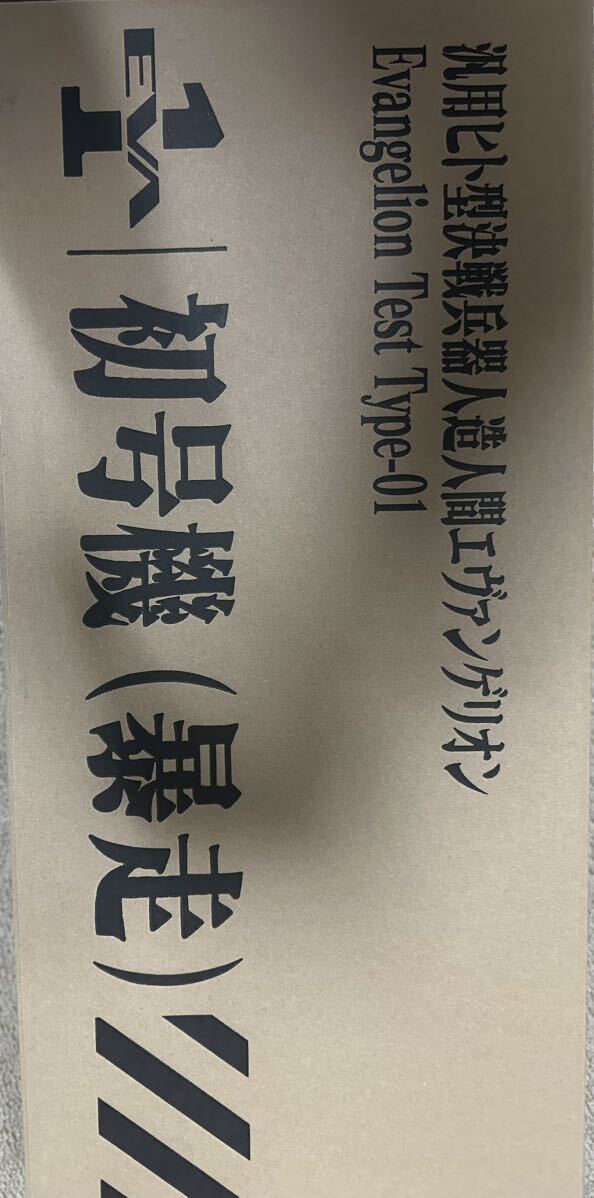 汎用ヒト型決戦兵器人造人間エヴァンゲリオン
Evangelion Test Type-01
EVA 1 初号機(暴走)